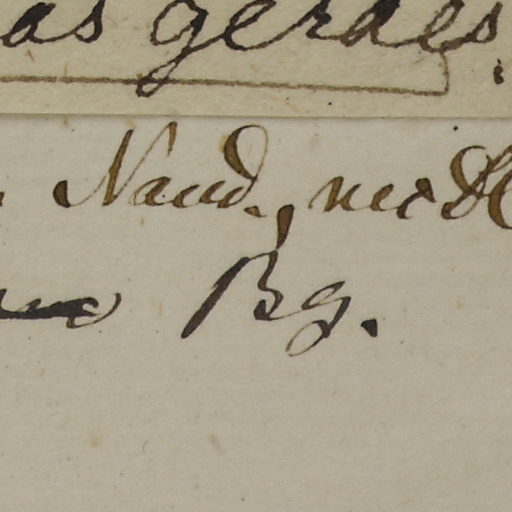 as geraes.
Naud., nec
Bg.